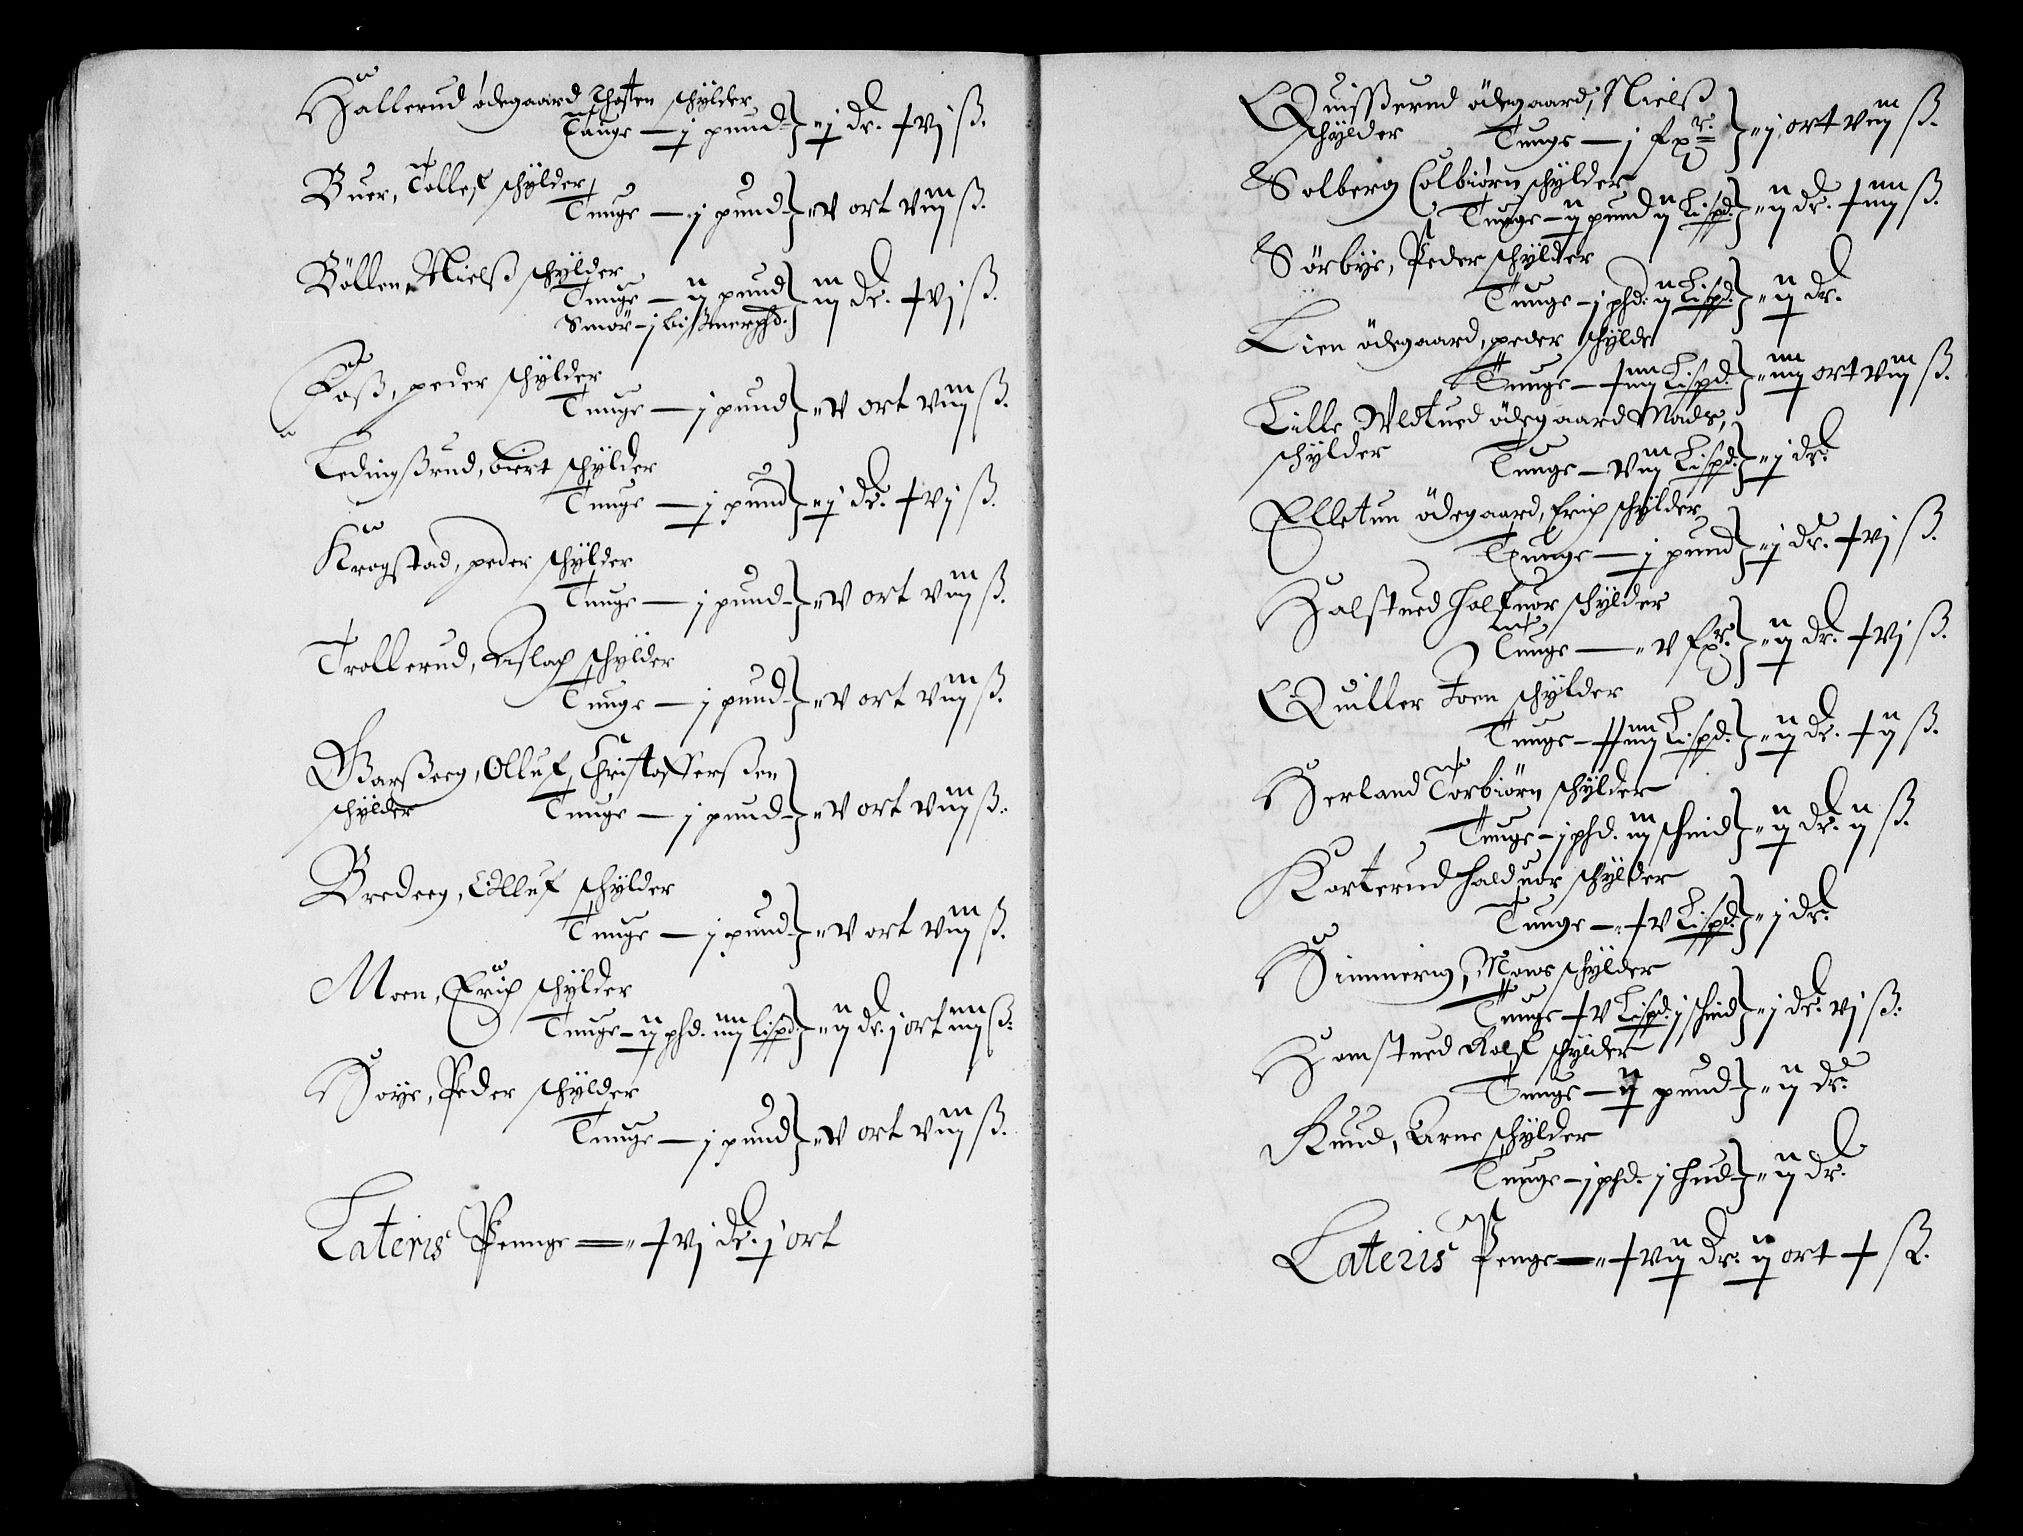 Hallerud ödegaard Chosten schylder
Tunge — j pund } „j dr. + vj ß.
Buer, Tollef schylder
Tunge — j pund } „v ort viij ß.
Böllen, Nielß schylder
Tunge — ij pund
Smör — j bißmerphd. } iij dr. + vj ß.
Foß, peder schylder
Tunge — j pund } „v ort viij ß.
Ledingßrud, biert schylder
Tunge — j pund } „j dr. + vj ß.
Krogstad, peder schylder
Tunge — j pund } „v ort viij ß.
Trollerud, Aslach schylder
Tunge — j pund } „v ort viij ß.
Garßeeg, Olluf Christofferßen
schylder Tunge — j pund } „v ort viij ß.
Bredeeg, Olluf schylder
Tunge — j pund } „v ort viij ß.
Moen, Erich schylder
Tunge — ij phd. iiij lispd. } „ij dr. j ort iiij ß.
Høye, Peder schylder
Tunge — j pund } „v ort viij ß.
Lateris Penge — „+vj dr. j ort
Quisserud ödegaard, Nielß
schylder Tunge — j fxr. } „j ort viij ß.
Solberg Colbiörn schylder
Tunge — ij pund ij Lispd. } „ij dr. + iiij ß.
Sörbye, Peder schylder
Tunge — j phd. ij Lispd. } „ij dr.
Lien ödegaard, peder schylde
Tunge — + iiij Lispd. } „iiij ort viij ß.
Lille Weltued ödegaard Mads,
schylder Tunge — viij Lispd. } „j dr.
Elletun ödegaard, Erich schylder
Tunge — j pund } „j dr. + vj ß.
Halstued Halluor schylder
Tunge — „v fxr. } „ij dr. + vj ß.
Quiller Joen schylder
Tunge — ++ iiij Lispd. } „ij dr. + ij ß.
Herland Torbiörn schylder
Tunge — j phd. iij schind } „ij dr. ij ß.
Korterud Halduor schylder
Tunge — „+ v Lispd. } „j dr.
Himmerig, Mons schylder
Tunge + v Lispd. j schind } „j dr. vj ß.
Homstued Rolf schylder
Tunge — ij pund } „ij dr.
Ruud, Arne schylder
Tunge — j phd. j hud } „ij dr.
Lateris Penge — „+vij dr. ij ort + ß.